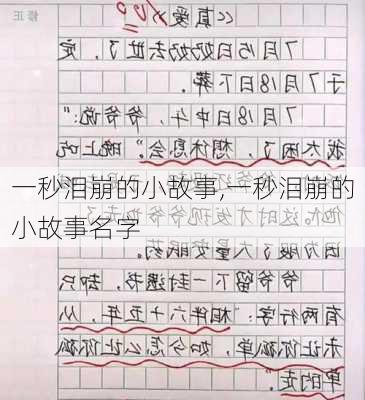 《真爱》
7月15日奶奶去世了，定
于7月18日下葬。
7月18日中午，爷爷说：“
我太困了，想休息会。”晚上吃
一秒泪崩的小故事,一秒泪崩的
他。这时才发现爷爷也走了
小故事名字
因为服了大量安眠药。
爷爷留下一封遗书，却只
有两行字：“相伴六十五年，从
未让你孤单，如今怎么让你孤
单的走。”